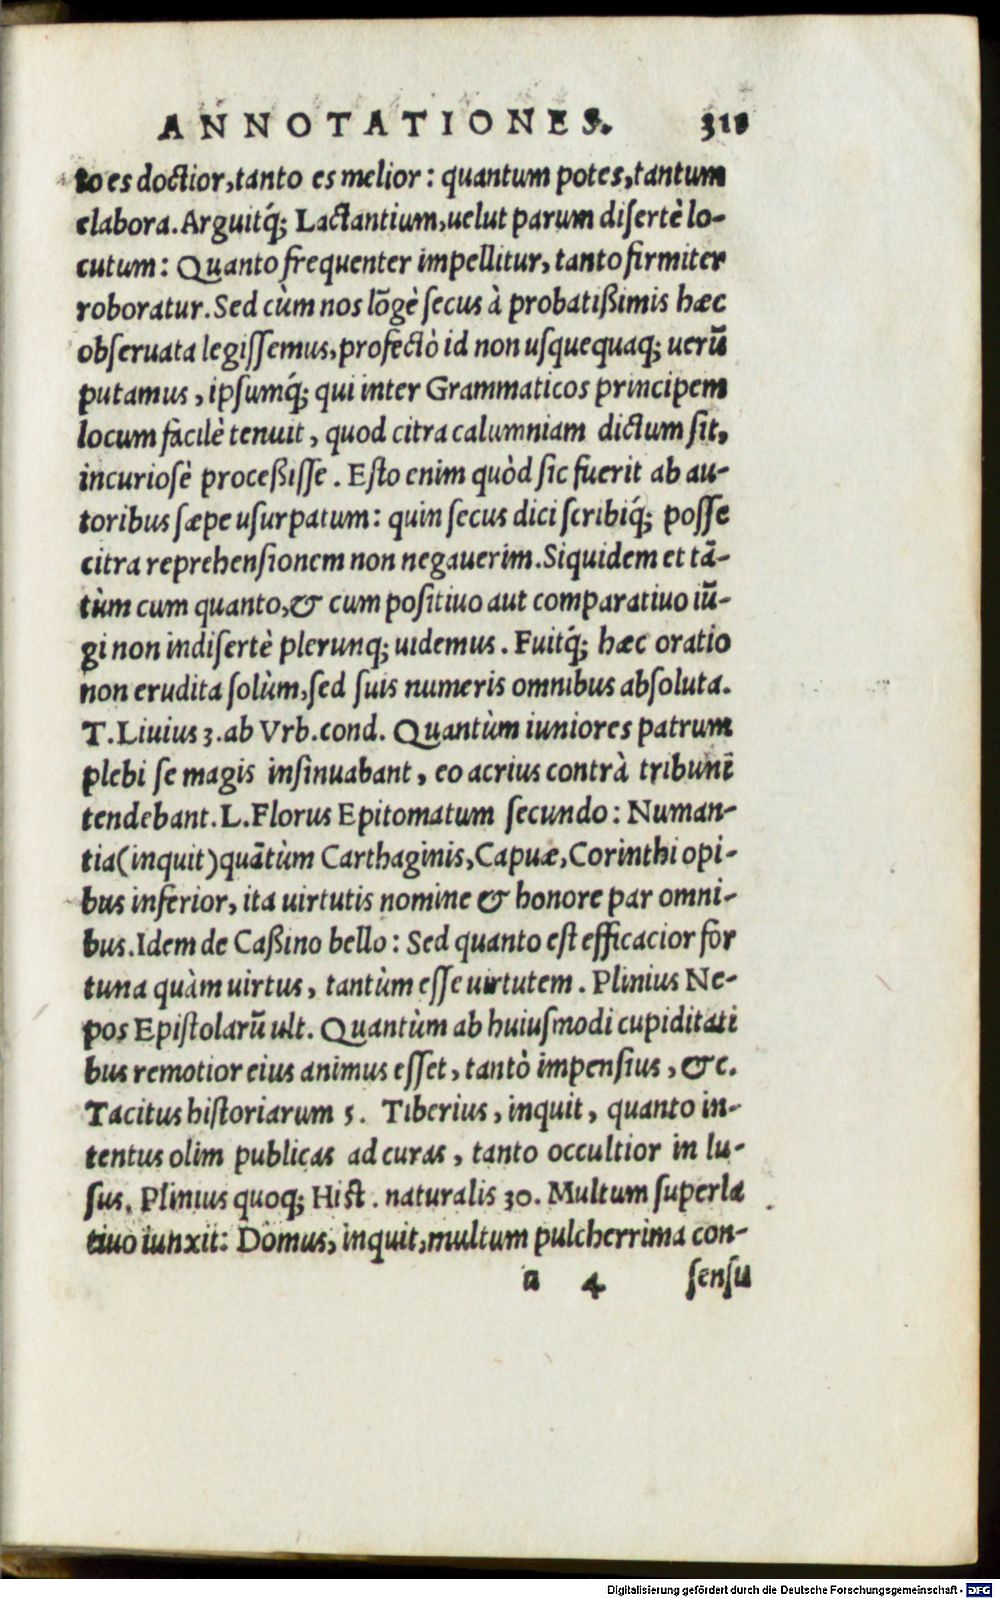 ANNOTATIONES. 311
to es doctior, tanto es melior: quantum potes, tantum
elabora. Arguitq́; Lactantium, uelut parum disertè lo-
cutum: Quanto frequenter impellitur, tanto firmiter
roboratur. Sed cùm nos lōgè secus à probatißimis hæc
obseruata legissemus, profectò id non usquequaq; uerū
putamus, ipsumq́; qui inter Grammaticos principem
locum facilè tenuit, quod citra calumniam dictum sit,
incuriosè proceßisse. Esto enim quòd sic fuerit ab au-
toribus sæpe usurpatum: quin secus dici scribiq́; posse
citra reprehensionem non negauerim. Siquidem et tā-
tùm cum quanto, & cum positiuo aut comparatiuo iū-
gi non indisertè plerunq; uidemus. Fuitq́; hæc oratio
non erudita solùm, sed suis numeris omnibus absoluta.
T. Liuius 3. ab Vrb. cond. Quantùm iuniores patrum
plebi se magis insinuabant, eo acrius contrà tribuni
tendebant. L. Florus Epitomatum secundo: Numan-
tia (inquit) quātùm Carthaginis, Capuæ, Corinthi opi-
bus inferior, ita uirtutis nomine & honore par omni-
bus. Idem de Caßino bello: Sed quanto est efficacior for
tuna quàm uirtus, tantùm esse uirtutem. Plinius Ne-
pos Epistolarū ult. Quantùm ab huiusmodi cupiditati
bus remotior eius animus esset, tantò impensius, &c.
Tacitus historiarum 5. Tiberius, inquit, quanto in-
tentus olim publicas ad curas, tanto occultior in lu-
sus. Plinius quoq; Hist. naturalis 30. Multum superla
tiuo iunxit: Domus, inquit, multum pulcherrima con-
a 4 sensu
Digitalisierung gefördert durch die Deutsche Forschungsgemeinschaft - DFG